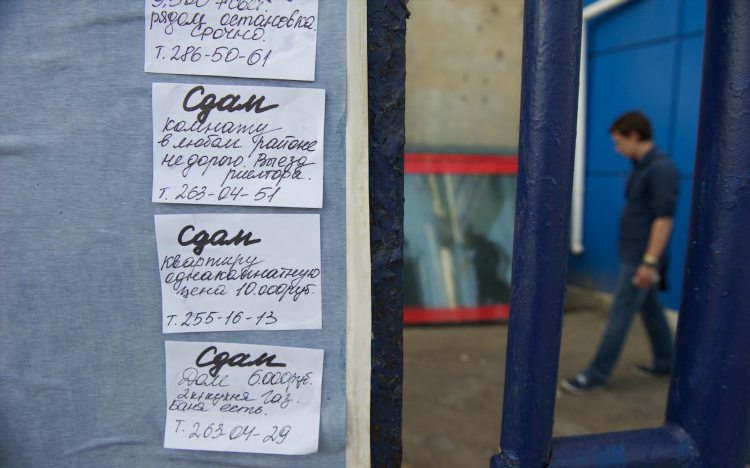 рядом остановка.
Срочно.
Т. 286-50-61
Сдам
комнату
в любом районе
недорого. Выезд
риелтора.
т. 263-04-51
Сдам
квартиру
однакамнатную
цена 10.000руб.
т. 255-16-13
Сдам
Дом 6000руб.
2к+кухня Газ.
Баня есть.
Т. 263-04-29